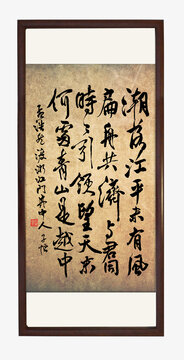 潮落江平未有風
扁舟共濟与君同
時々引領望天末
何處青山是越中
孟浩然渡浙江问舟中人